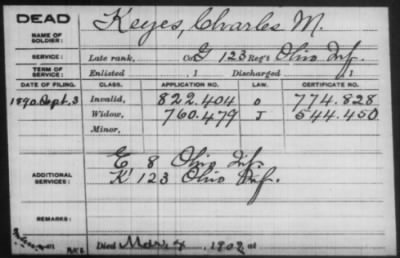 DEAD
NAME OF SOLDIER: Keyes, Charles M.
SERVICE: Late rank, Co. G 123 Reg't Ohio Inf.
TERM OF SERVICE: Enlisted , 1 Discharged , 1
DATE OF FILING. CLASS. APPLICATION NO. LAW. CERTIFICATE NO.
1890 Sept. 3 Invalid, 822.404 O 774.828
Widow, 760.479 J 544.450
Minor,
ADDITIONAL SERVICES: E 8 Ohio Inf.
K 123 Ohio Inf.
REMARKS:
Died Mar. 4, 1902 at